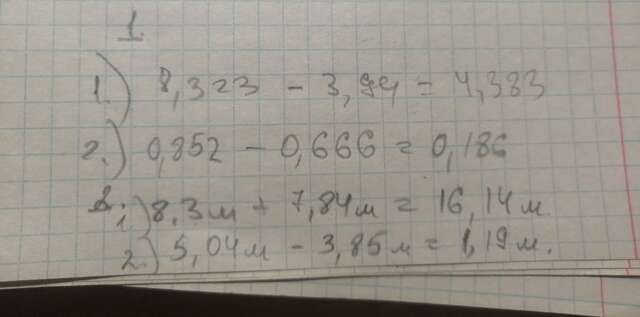 1.
1.) 8,323 - 3,94 = 4,383
2.) 0,852 - 0,666 = 0,186
2. 1.) 8,3м + 7,84м = 16,14м
2.) 5,04м - 3,85м = 1,19м.